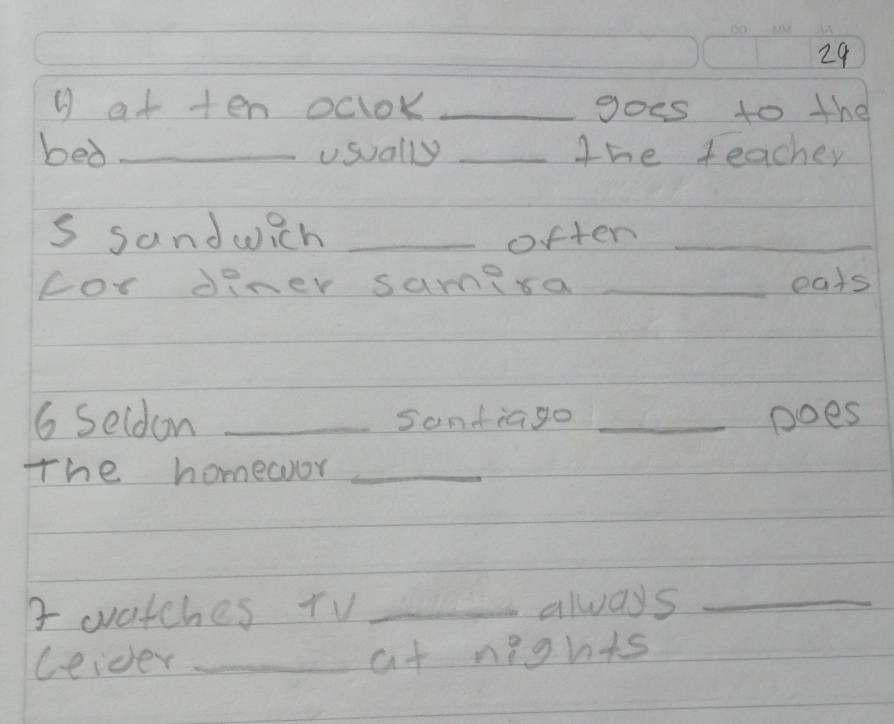 29
4) at ten oclok ______ goes to the
bed ______ usually ____ the teacher
5 sandwich _____ often ______
for diner samira ______ eats
6 Seldon ______ santiago _____ Does
The homewor _____
7 watches TV ______ always ______
Leider ______ at nights